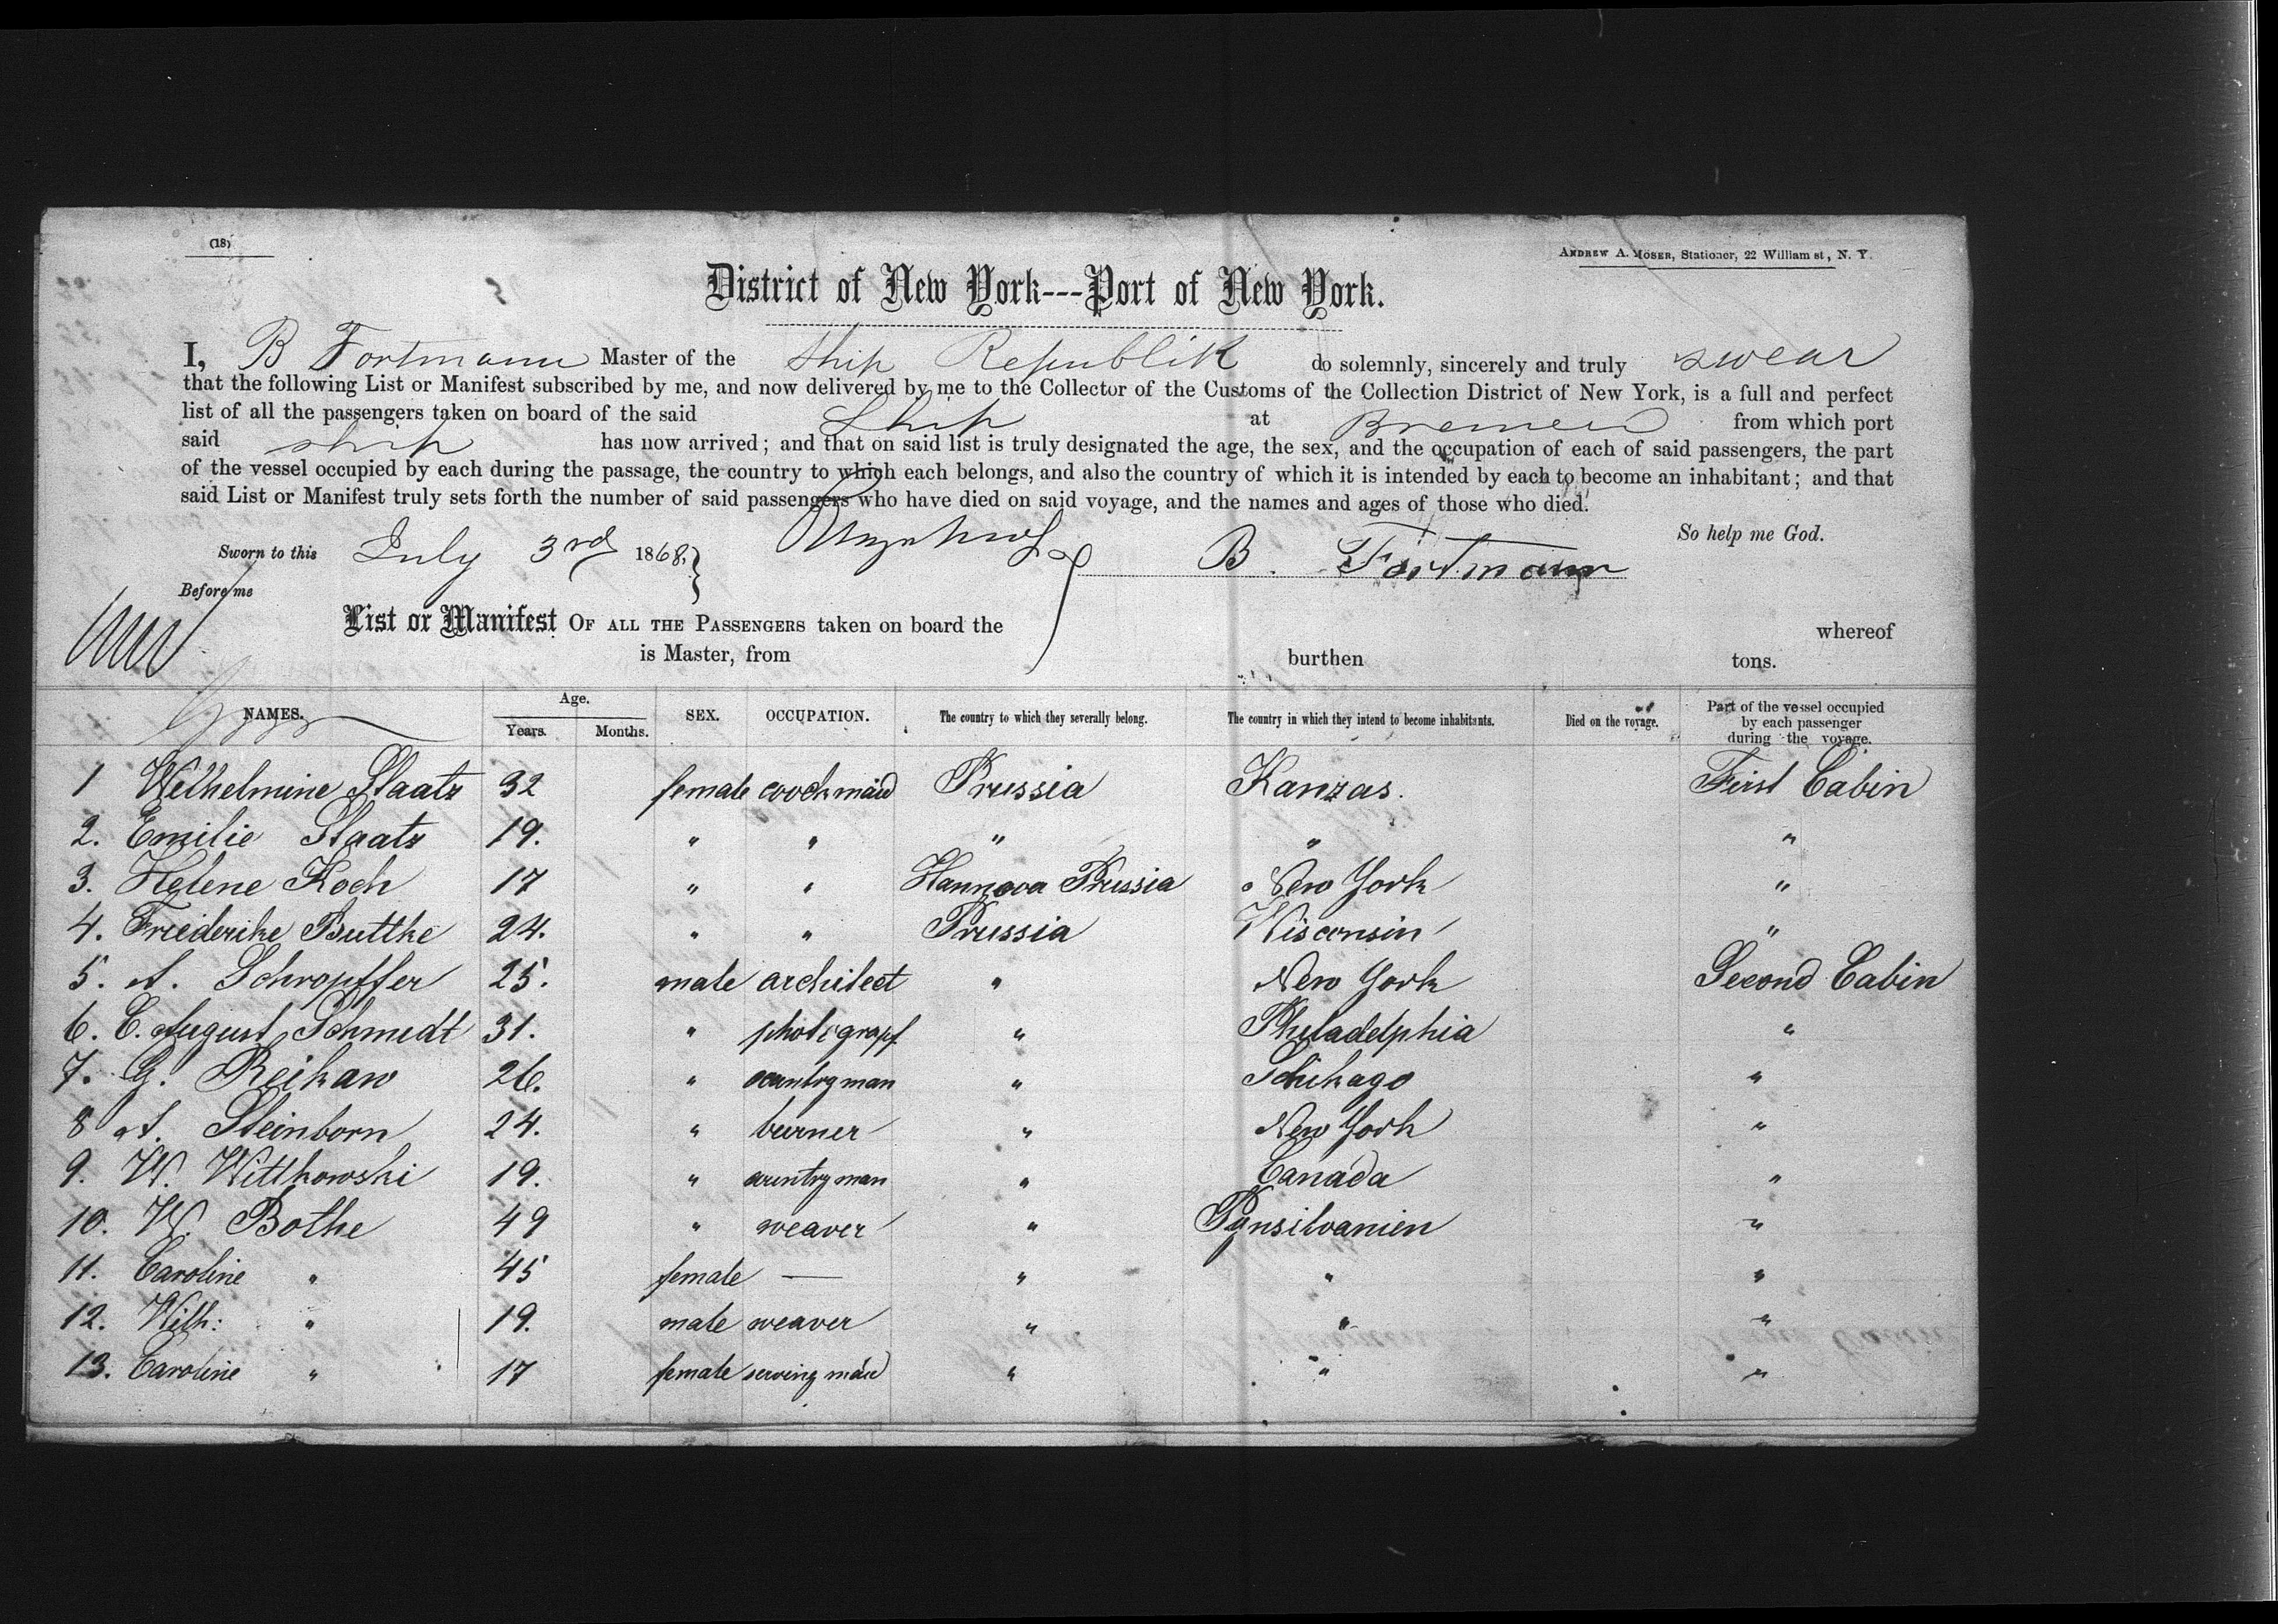 (18)
ANDREW A. MOSER, Stationer, 22 William st, N. Y.
District of New York---Port of New York.
I, B Fortmann Master of the Ship Republik do solemnly, sincerely and truly swear
that the following List or Manifest subscribed by me, and now delivered by me to the Collector of the Customs of the Collection District of New York, is a full and perfect
list of all the passengers taken on board of the said Ship at Bremen from which port
said ship has now arrived; and that on said list is truly designated the age, the sex, and the occupation of each of said passengers, the part
of the vessel occupied by each during the passage, the country to which each belongs, and also the country of which it is intended by each to become an inhabitant; and that
said List or Manifest truly sets forth the number of said passengers who have died on said voyage, and the names and ages of those who died.
So help me God.
Sworn to this July 3rd 1868. B. Fortmann
Before me
List or Manifest OF ALL THE PASSENGERS taken on board the whereof
is Master, from burthen tons.
NAMES. Age. Years. Months. SEX. OCCUPATION. The country to which they severally belong. The country in which they intend to become inhabitants. Died on the voyage. Part of the vessel occupied by each passenger during the voyage.
1 Wilhelmine Staats 32 female coockmaid Prussia Kanzas. First Cabin
2. Emilie Staats 19. " " " " "
3. Helene Koch 17 " " Hannova Prussia New York "
4. Friederike Buttke 24. " " Prussia Wisconsin "
5. A. Schropffer 25. male architect " New York Second Cabin
6. C. August Schmidt 31. " photograpf " Philadelphia "
7. G. Reikaw 26. " countryman " Schikago "
8 A. Steinborn 24. " burner " New York "
9. W. Wittkowski 19. " countryman " Canada "
10. W. Bothe 49 " weaver " Pynsilvanien "
11. Caroline " 45 female — " " "
12. Wilh: " 19. male weaver " " "
13. Caroline " 17 female serving maid " " "